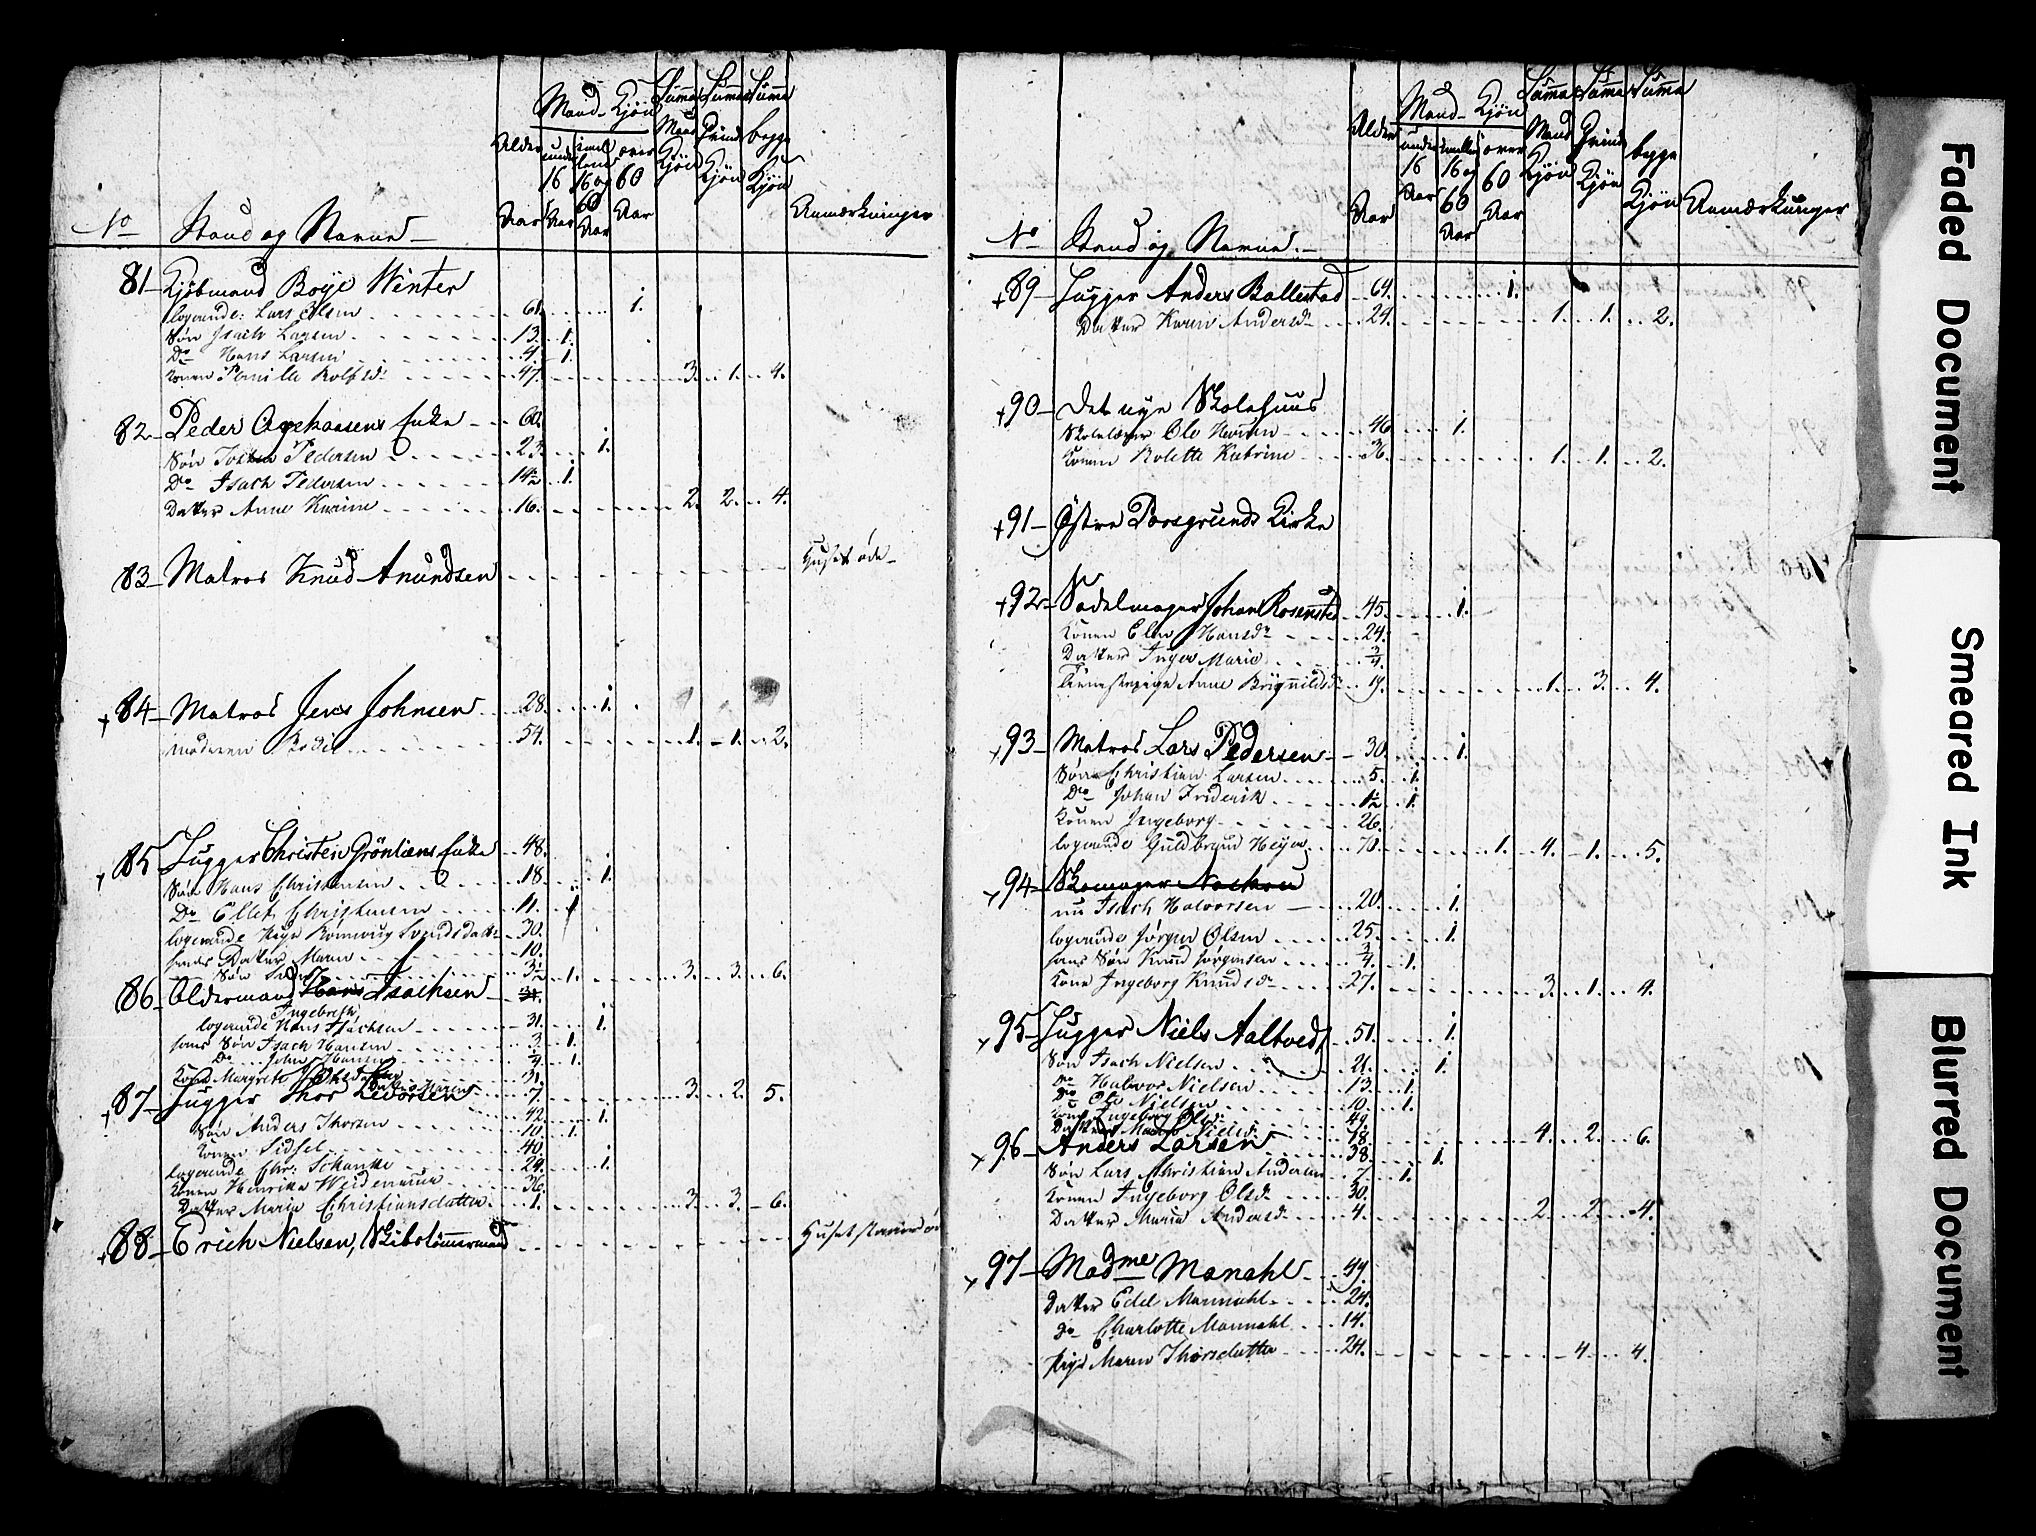 Mand Kjön Summa Summa Summa
Alder under 16 Aar imellem 16 og 60 Aar over 60 Aar Mand Kjön Qvinde Kjön begge Kjön
No Stand og Navne Aar Anmærkninger
81 Kjöbmand Boye Winter
logerende: Lars Olsen 61. 1.
Søn Isach Larsen 13. 1.
Do Hans Larsen 4. 1.
Konen Pernille Rolfsd. 47. 3. 1. 4.
82 Peder Aagehaasens Enke 60.
Søn Tosten Pedersen 23. 1.
Do Isach Pedersen 14½ 1.
Datter Anne Karine 16. 2. 2. 4.
83 Matros Knud Anundsen Huset øde
+84 Matros Jens Johnsen 28. 1.
Moderen Bodil 54. 1. 1. 2.
+85 Jugger Christen Gröntvens Enke 48.
Søn Hans Christensen 18. 1.
Do Ellef Christensen 11. 1
logerende Pige Svendsdatter 30.
hendes Datter Maren 10.
Søn 3½ 1. 3. 3. 6.
86 Oldermand Hans Isachsen 31.
Ingebreth
logerende Hans Isachsen 31. 1.
hans Søn Isach Hansen 3. 1.
Do John Hansen ¾ 1.
Kone Margrete 31.
Datter Maren 7. 3. 2. 5.
+87 Jugger Thor Levorsen 42. 1.
Søn Anders Thorsen 10. 1.
Konen Sidsel 40.
logerende Chr: Schanke 29. 1.
Konen Henrika Weidemann 36.
Datter Maria Christiansdatter 1. 3. 3. 6.
+88 Erich Nielsen, Skibstömmermand Huset staaer öde
Mand Kjön Summa Summa Summa
Alder under 16 Aar imellem 16 og 60 Aar over 60 Aar Mand Kjön Qvinde Kjön begge Kjön
No Stand og Navne Aar Anmærkninger
+89 Jugger Anders Ballestad 64. 1.
Datter Karen Andersd. 29. 1. 1. 2.
+90 Det nye Skolehuus
Skolelærer Ole Hansen 46 1.
Konen Rolette Katrine 36. 1. 1. 2.
+91 Østre Porsgrunds Kirke
+92 Sadelmager Johan Rosensted 45. 1.
Konen Elen Hansdr 24.
Datter Inger Marie ¾.
Tienestepige Anne Brÿnnildsdr 19. 1. 3. 4.
+93 Matros Lars Pedersen 30. 1.
Søn Christian Larsen 5. 1.
Do Johan Friderik 1½ 1.
Konen Ingeborg 26.
logerende Guldbrand Heÿer 70. 1. 4. 1. 5.
+94 Skomager
nu Isach Halvorsen 20. 1.
logerende Jörgen Olsen 25. 1.
hans Søn Knud Jörgensen ¾. 1.
Kone Ingeborg Knudsdr 27. 3. 1. 4.
+95 Jugger Niels Aaltvedt 51. 1.
Søn Isach Nielsen 21. 1.
Do Halvor Nielsen 13. 1.
Do Ole Nielsen 10. 1.
Kone Ingeborg Olsdr 49.
Datter Nielsd. 18. 4. 2. 6.
+96 Anders Larsen 38. 1.
Søn Lars Christian Andersen 7. 1.
Konen Ingeborg Olsdr 30.
Datter Maria Andersd. 4. 2. 2. 4.
+97 Madme Monahl 49.
Datter Edel Mannahl 24.
Do Charlotte Mannahl 14.
Pige Maren Thorsdatter 24. 4. 4.
Faded Document
Smeared Ink
Blurred Document